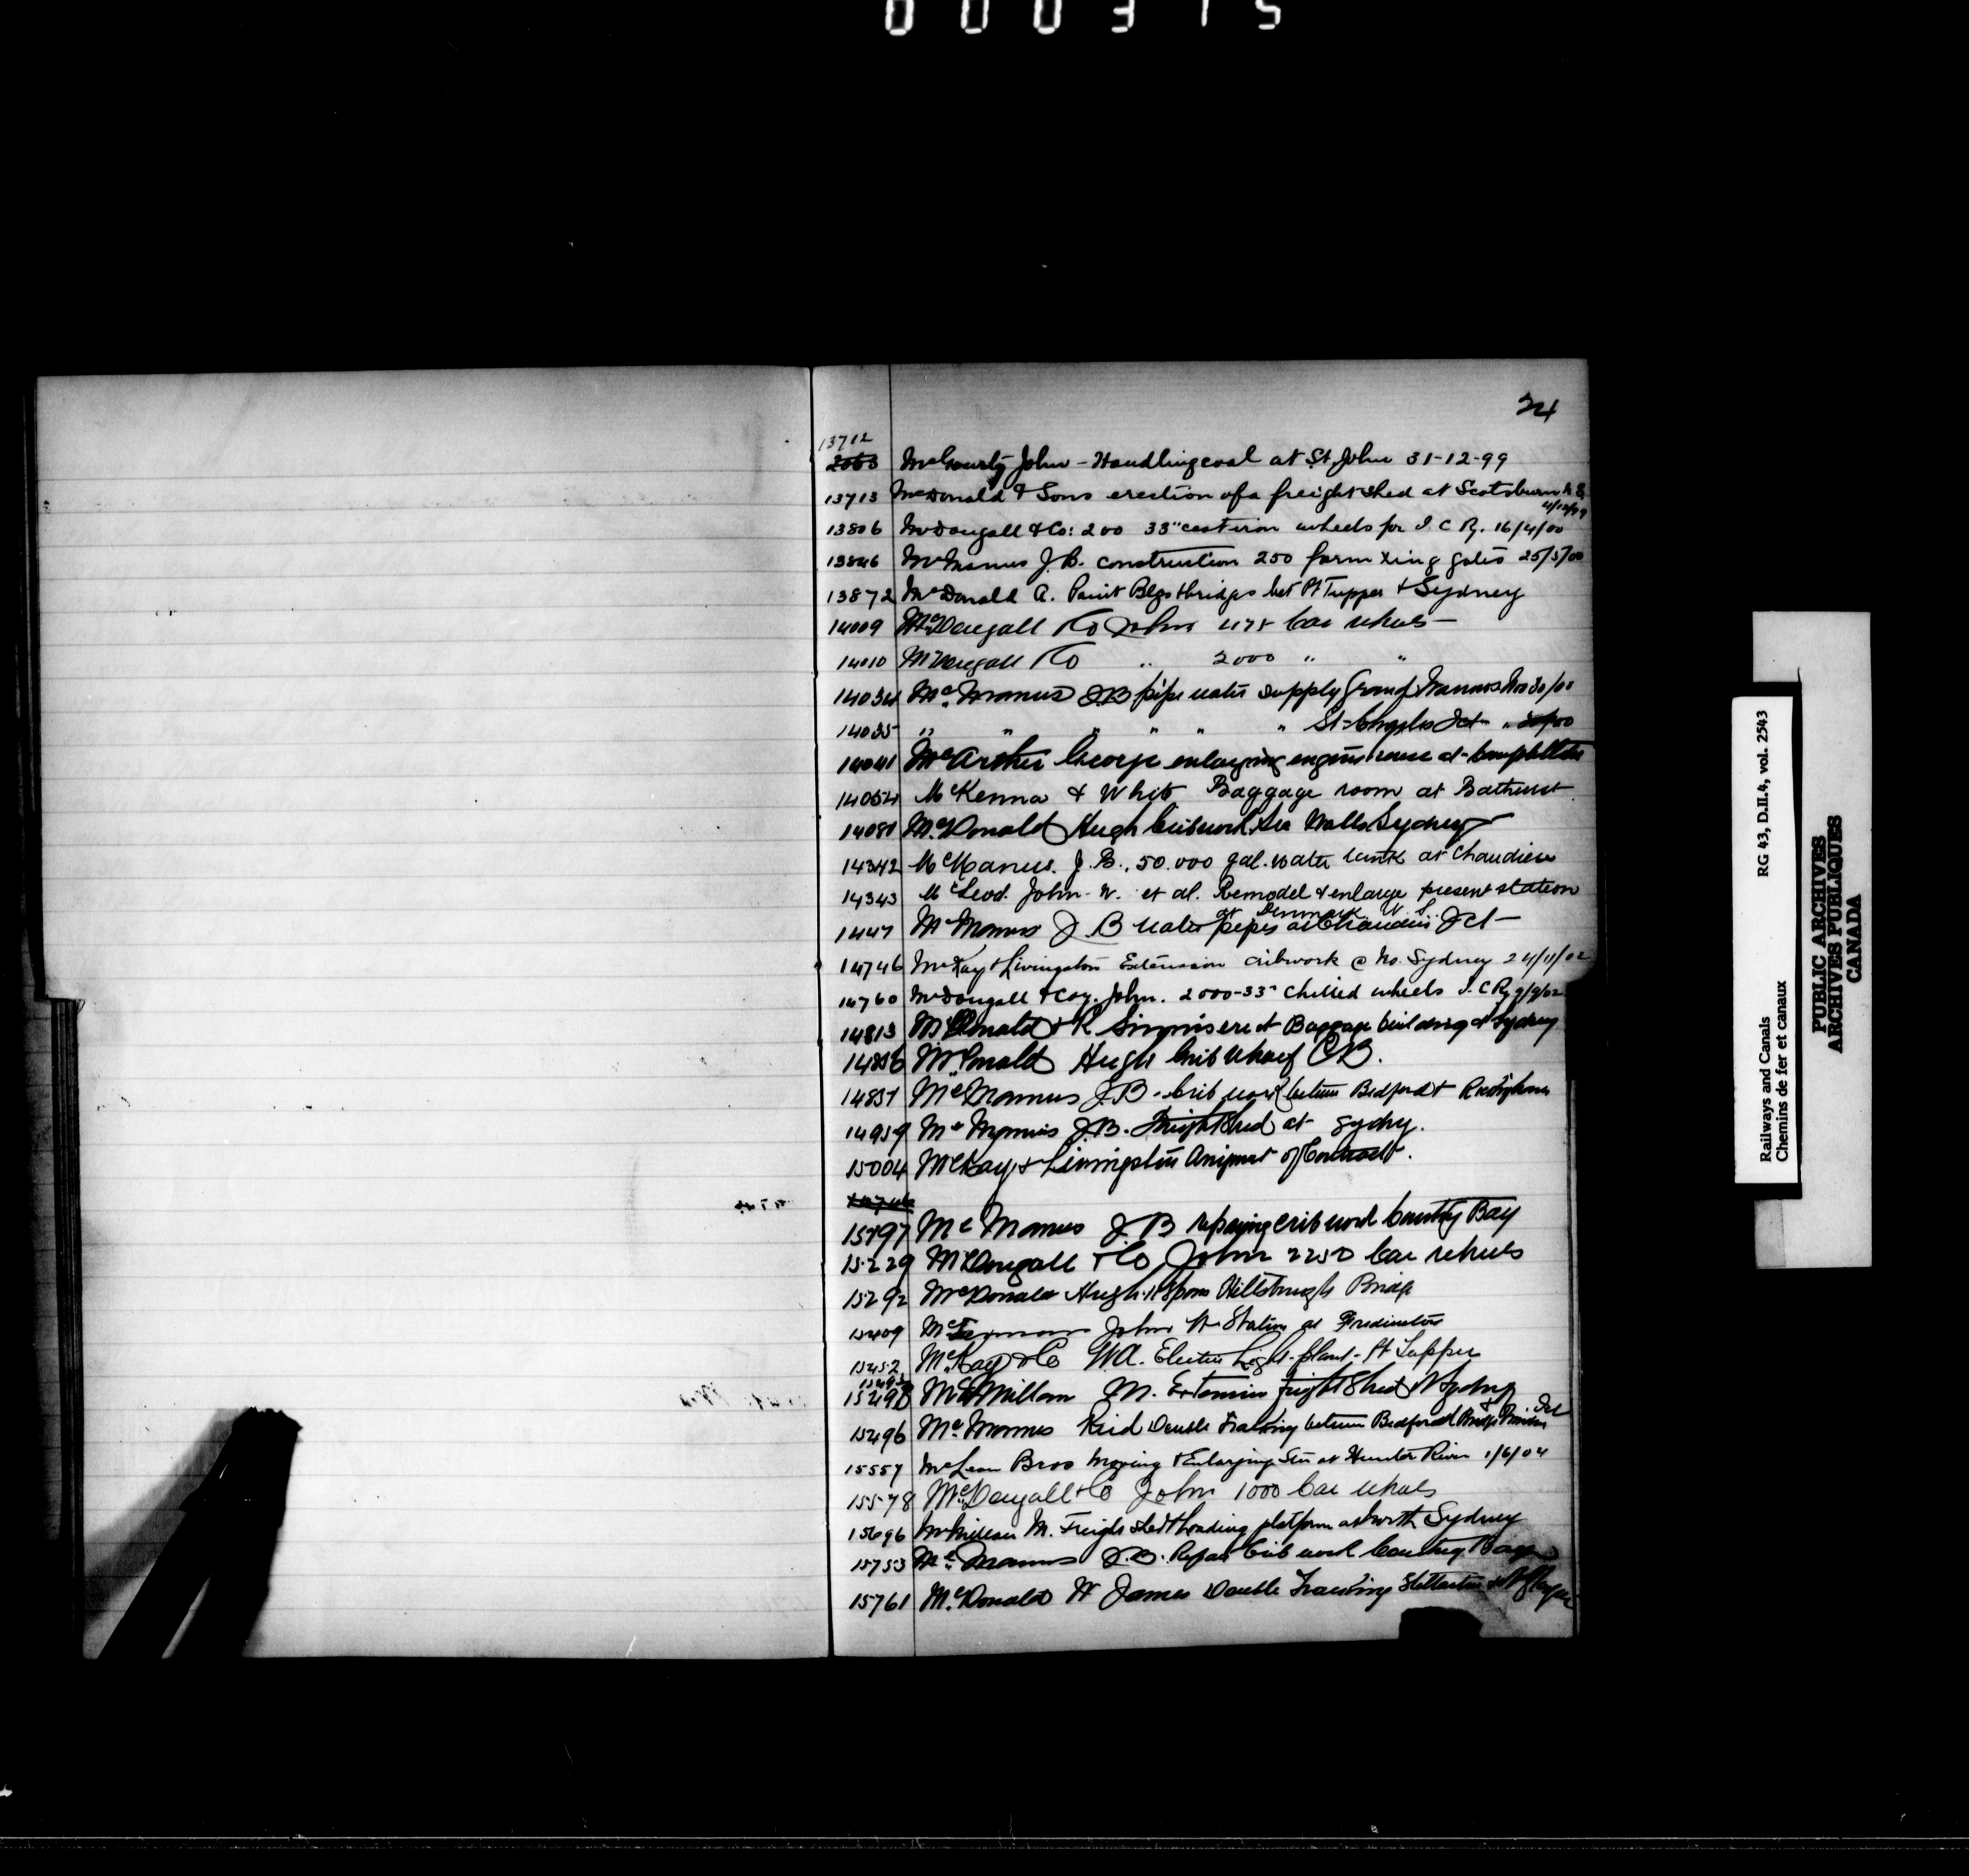 000315
24
13712
2063 McGourty John - Handling coal at St. John 31-12-99
13713 McDonald & Sons erection of a freight shed at Scotsburn N.S.
4/12/99
13806 McDougall & Co: 200 33" cast iron wheels for I. C. R. 16/4/00
13846 McManus J.B. construction 250 farm Xing gates 25/5/00
13872 McDonald A. Paint Blgs & bridges bet Pt Tupper & Sydney
14009 McDougall & Co John 475 Car wheels -
14010 McDougall & Co " 2000 " "
14034 McManus J.B pipe water supply Grand Narrows Nov 30/00
14035 " " " " " " St. Charles Jct " 30/00
14041 McArthur George enlarging engine house at Campbellton
14054 McKenna & White Baggage room at Bathurst
14081 McDonald Hugh Cribwork Sea Walls Sydney
14342 McManus. J. B., 50.000 gal. water tank at Chaudiere
14343 McLeod. John. W. et al. Remodel & enlarge present station
at Denmark N. S.
1447 McManus J B water pipes at Chaudiere Jct -
14746 McKay & Livingston Extension cribwork @ No. Sydney 24/11/02
14760 McDougall & Coy. John. 2000-33" Chilled wheels I. C R, 9/9/02
14813 McDonald & R Simmis erect Baggage building at Sydney
14836 McDonald Hugh Crib Wharf CB.
14837 McManus J.B. Crib work between Bedford & Rockingham
14959 McManus J.B. Freight Shed at Sydny.
15004 McKay & Livingston Assignment of Contract.
15197 McManus J B repairing crib work Country Bay
15229 McDougall & Co John 2250 Car wheels
15292 McDonald Hugh. 18 spans Hillsbrough Bridge
15409 John W Station at Fredericton
15452 McKay & Co W.A. Electric Light-plant - Pt Tupper
15493
15498 McMillan M. Extension Freight Shed N Sydney
15496 McManus Reid Double Tracking between Bedford & Windsor Jct
15557 McLean Bros Moving & Enlarging Stn at Hunter River 1/6/04
15578 McDougall & Co John 1000 Car wheels
15696 McMillan M. Freight shed & loading platform at North Sydney
15753 McManus J.B. Repair Crib work Country Bay
15761 McDonald W James Double Tracking Stellarton &
Railways and Canals RG 43, D.II.4, vol. 2543
Chemins de fer et canaux
PUBLIC ARCHIVES
ARCHIVES PUBLIQUES
CANADA